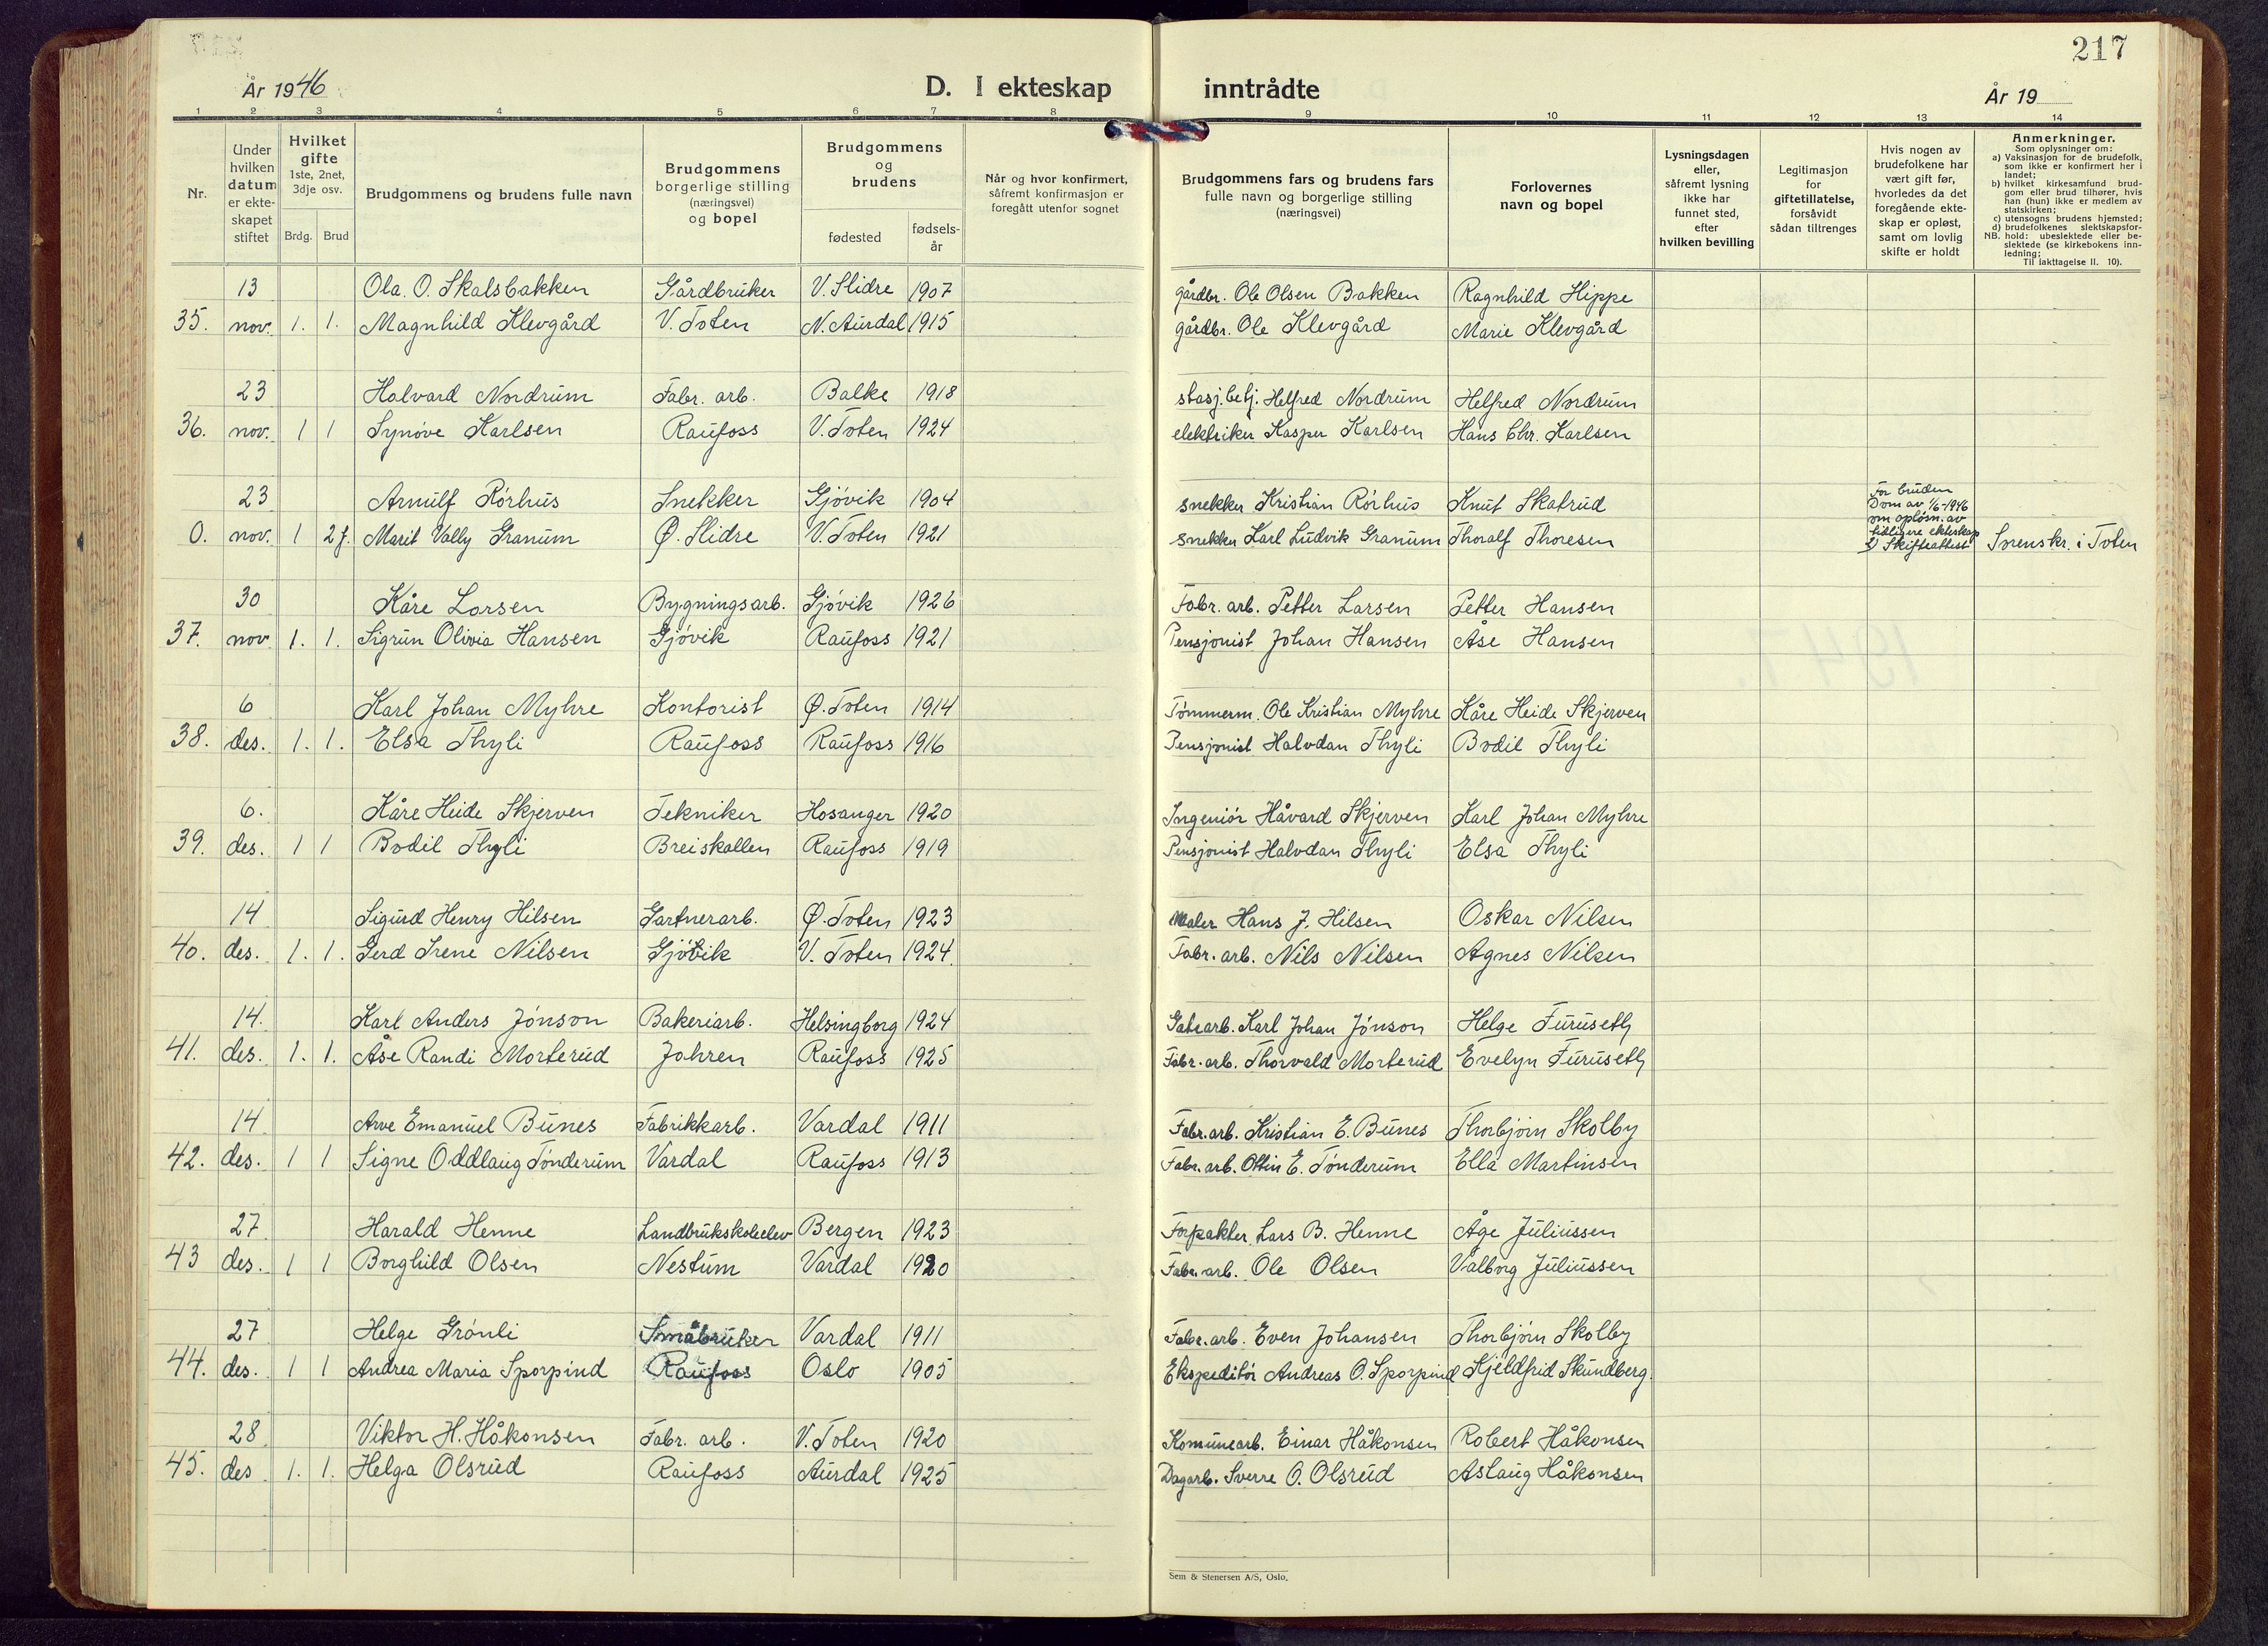 217
År 1946
D. I ekteskap inntrådte
År 19
1 2 3 4 5 6 7 8 9 10 11 12 13 14
Nr.
Under hvilken datum er ekteskapet stiftet
Hvilket gifte 1ste, 2net, 3dje osv.
Brdg. Brud
Brudgommens og brudens fulle navn
Brudgommens borgerlige stilling (næringsvei) og bopel
Brudgommens og brudens
fødested
fødsels-år
Når og hvor konfirmert, såfremt konfirmasjon er foregått utenfor sognet
Brudgommens fars og brudens fars fulle navn og borgerlige stilling (næringsvei)
Forlovernes navn og bopel
Lysningsdagen eller, såfremt lysning ikke har funnet sted, efter hvilken bevilling
Legitimasjon for giftetillatelse, forsåvidt sådan tiltrenges
Hvis nogen av brudefolkene har vært gift før, hvorledes da det foregående ekteskap er opløst, samt om lovlig skifte er holdt
Anmerkninger.
Som oplysninger om:
a) Vaksinasjon for de brudefolk, som ikke er konfirmert her i landet;
b) hvilket kirkesamfund brudgom eller brud tilhører, hvis han (hun) ikke er medlem av statskirken;
c) utensogns brudens hjemsted;
d) brudefolkenes slektskapsforhold: ubeslektede eller beslektede (se kirkebokens innledning;
NB. Til iakttagelse II. 10).
13 Ola. O. Skalsbakken Gårdbruker V. Slidre 1907 gårdbr. Ole Olsen Bakken Ragnhild Hippe
35. nov. 1. 1. Magnhild Klevgård V. Toten N. Aurdal 1915 gårdbr. Ole Klevgård Marie Klevgård
23 Halvard Nordrum Fabr. arb. Balke 1918 stasj. betj. Helfred Nordrum Helfred Nordrum
36. nov. 1 1 Synöve Karlsen Raufoss V. Toten 1924 elektriker Kasper Karlsen Hans Chr. Karlsen
23 Arnulf Rörhus Snekker Gjövik 1904 snekker Kristian Rörhus Knut Skatrud
0. nov. 1 2 f. Marit Vally Granum Ø. Slidre V. Toten 1921 snekker Karl Ludvik Granum Thoralf Thoresen
For bruden
Dom av 1/6-1946
om opløsn. av
tidligere ekteskap
Skifteattest Sorenskr. i Toten
30 Kåre Larsen Bygningsarb. Gjövik 1926 Fabr. arb. Petter Larsen Petter Hansen
37. nov 1. 1. Sigrun Olivia Hansen Gjövik Raufoss 1921 Pensjonist Johan Hansen Åse Hansen
6 Karl Johan Myhre Kontorist Ø. Toten 1914 Tömmerm. Ole Kristian Myhre Kåre Heide Skjerven
38. des. 1. 1. Elsa Thyli Raufoss Raufoss 1916 Pensjonist Halvdan Thyli Bodil Thyli
6. Kåre Heide Skjerven Tekniker Hosanger 1920 Ingeniör Håvard Skjerven Karl Johan Myhre
39. des. 1 1 Bodil Thyli Breiskallen Raufoss 1919 Pensjonist Halvdan Thyli Elsa Thyli
14 Sigurd Henry Hilsen Gartnerarb. Ø. Toten 1923 Maler Hans J. Hilsen Oskar Nilsen
40. des. 1. 1. Gerd Irene Nilsen Gjövik V. Toten 1924. Fabr. arb. Nils Nilsen Agnes Nilsen
14. Karl Anders Jönson Bakeriarb. Helsingborg 1924 Gatearb. Karl Johan Jönson Helge Furuseth
41. des. 1. 1. Åse Randi Morterud Jahren Raufoss 1925 Fabr. arb. Thorvald Morterud Evelyn Furuseth
14 Arve Emanuel Bunes Fabrikkarb. Vardal 1911 Fabr. arb. Kristian E. Bunes Thorbjörn Skolby
42. des. 1 1 Signe Oddlaug Tönderum Vardal Raufoss 1913 Fabr. arb. Ottin E. Tönderum Ella Martinsen
27 Harald Henne Landbrukskoleelev Bergen 1923 Forpakter Lars B. Henne Åge Juliussen
43 des. 1 1 Borghild Olsen Nestum Vardal 1920 Fabr. arb. Ole Olsen Valborg Juliussen
27 Helge Grönli Småbruker Vardal 1911 Fabr. arb. Even Johansen Thorbjörn Skolby
44. des. 1 1 Andrea Maria Sporpind Raufoss Oslo 1905 Ekspeditör Andreas O. Sporpind Kjeldfrid Skundberg.
28 Viktor H. Håkonsen Fabr. arb. V. Toten 1920 Komunearb. Einar Håkonsen Robert Håkonsen
45. des 1. 1. Helga Olsrud Raufoss Aurdal 1925 Dagarb. Sverre O. Olsrud Aslaug Håkonsen
Sem & Stenersen A/S, Oslo.